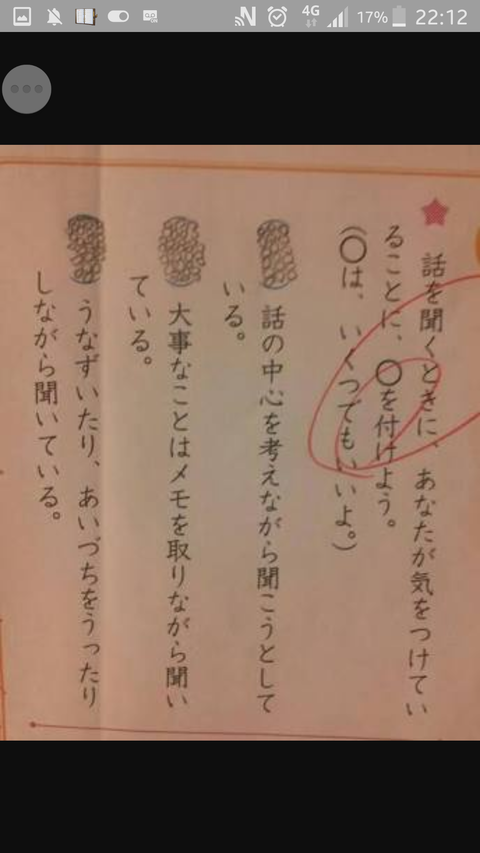 4G
17%
22:12
★ 話を聞くときに、あなたが気をつけてい
ることに、○を付けよう。
(○は、いくつでもいいよ。)
話の中心を考えながら聞こうとして
いる。
大事なことはメモを取りながら聞い
ている。
うなずいたり、あいづちをうったり
しながら聞いている。